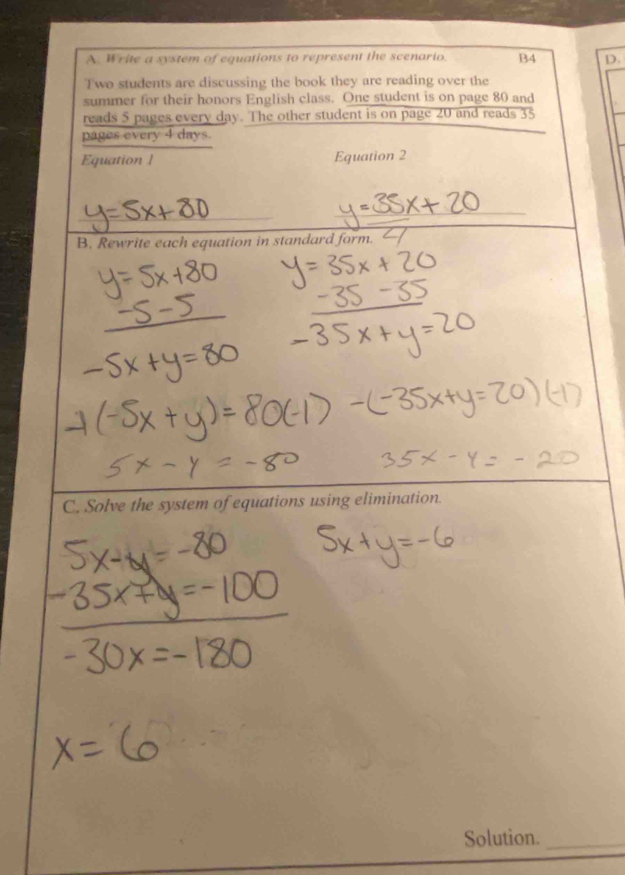 A. Write a system of equations to represent the scenario. B4
D.
Two students are discussing the book they are reading over the
summer for their honors English class. One student is on page 80 and
reads 5 pages every day. The other student is on page 20 and reads 35
pages every 4 days.
Equation 1 Equation 2
y=5x+80 y=35x+20
4
B. Rewrite each equation in standard form.
y=5x+80 y=35x+20
-5 -5 -35 -35
-5x+y=80 -35x+y=20
-1(-5x+y)=80(-1) -(-35x+y=20)(-1)
5x-y=-80 35x-y=-20
C. Solve the system of equations using elimination.
5x-y=-80 5x+y=-6
-35x+y=-100
-30x=-180
x=6
Solution.